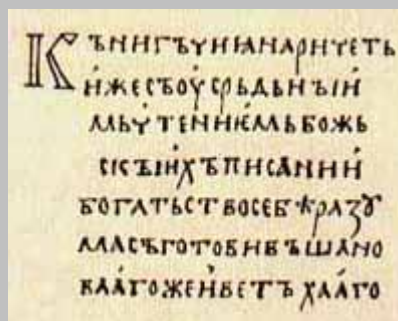 КЪНИГЪЧИꙖНАРИЧЕТЬ
И҆ЖЕСЪОУ҆СРЬДЬНЪІИ҆
МЬЧТЕНИѤМЬБОЖЬ
СКЪІИ҆ХЪПИСАНИИ҆
БОГАТЬСТВОСЕБѢРАЗꙊ
МАСЪГОТОВИВЪШАНО
ВААГОЖЕИ҆ВЕТЪХААГО